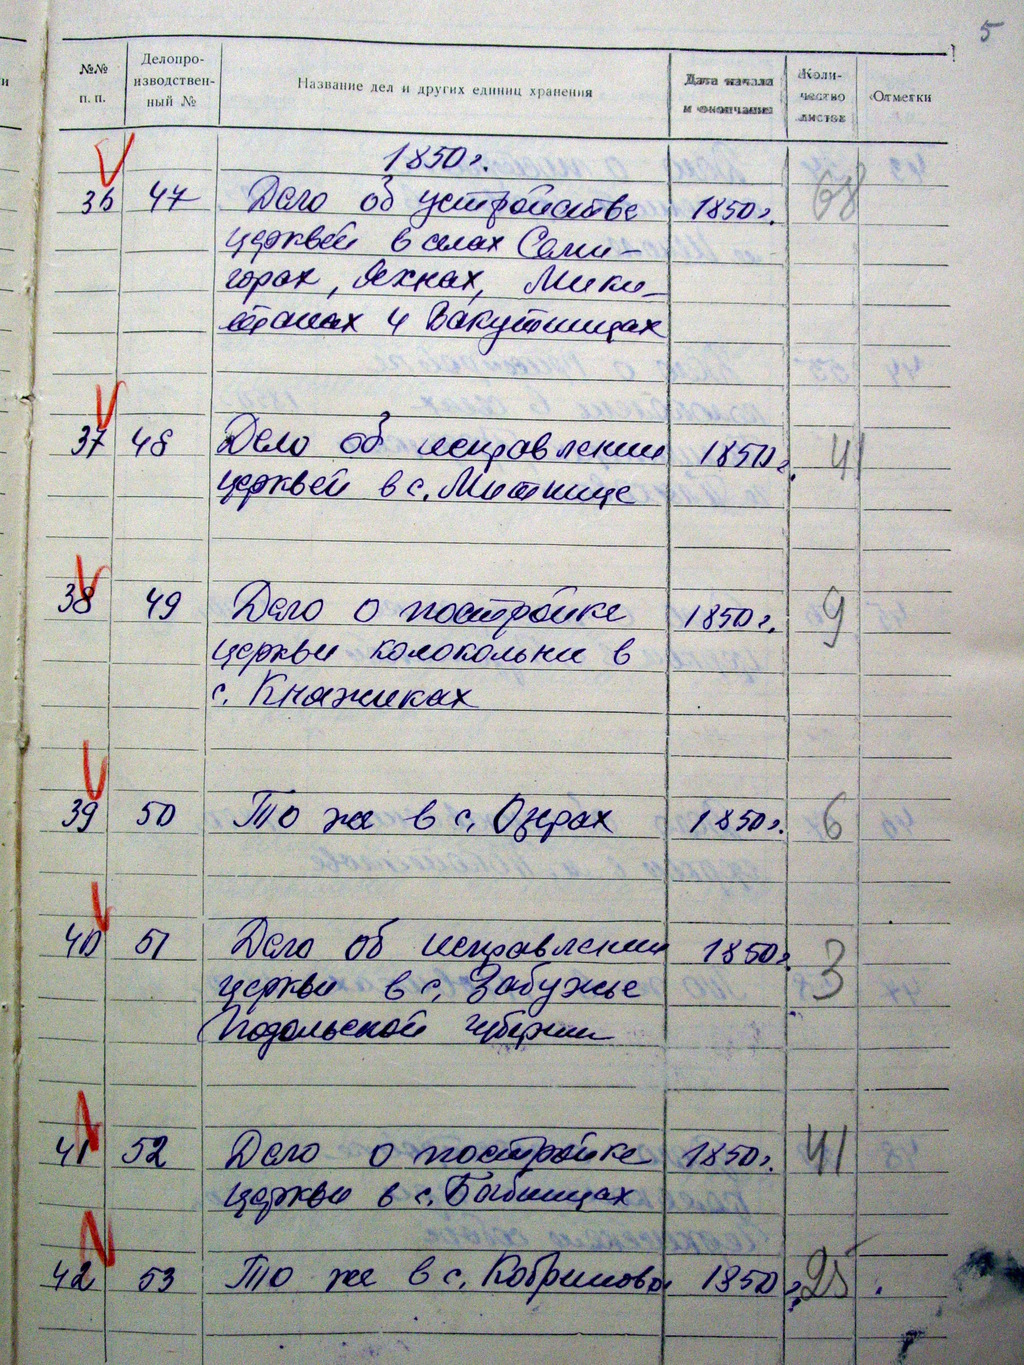 5
№№ п. п. Делопроизводственный № Название дел и других единиц хранения Дата начала и окончания Количество листов Отметки
1850 г.
36 47 Дело об устройстве 1850 г. 68
церквей в селах Семи-
горах, Яхнах, Мики-
танах и Вакутинцах
37 48 Дело об исправлении 1850 г. 41
церквей в с. Митнице
38 49 Дело о постройке 1850 г. 9
церкви колокольни в
с. Княжиках
39 50 То же в с. Озерах 1850 г. 6
40 51 Дело об исправлении 1850 г. 3
церкви в с. Забужье
Подольской губернии
41 52 Дело о постройке 1850 г. 41
церкви в с. Бабинцах
42 53 То же в с. Кобриново 1850 г. 25